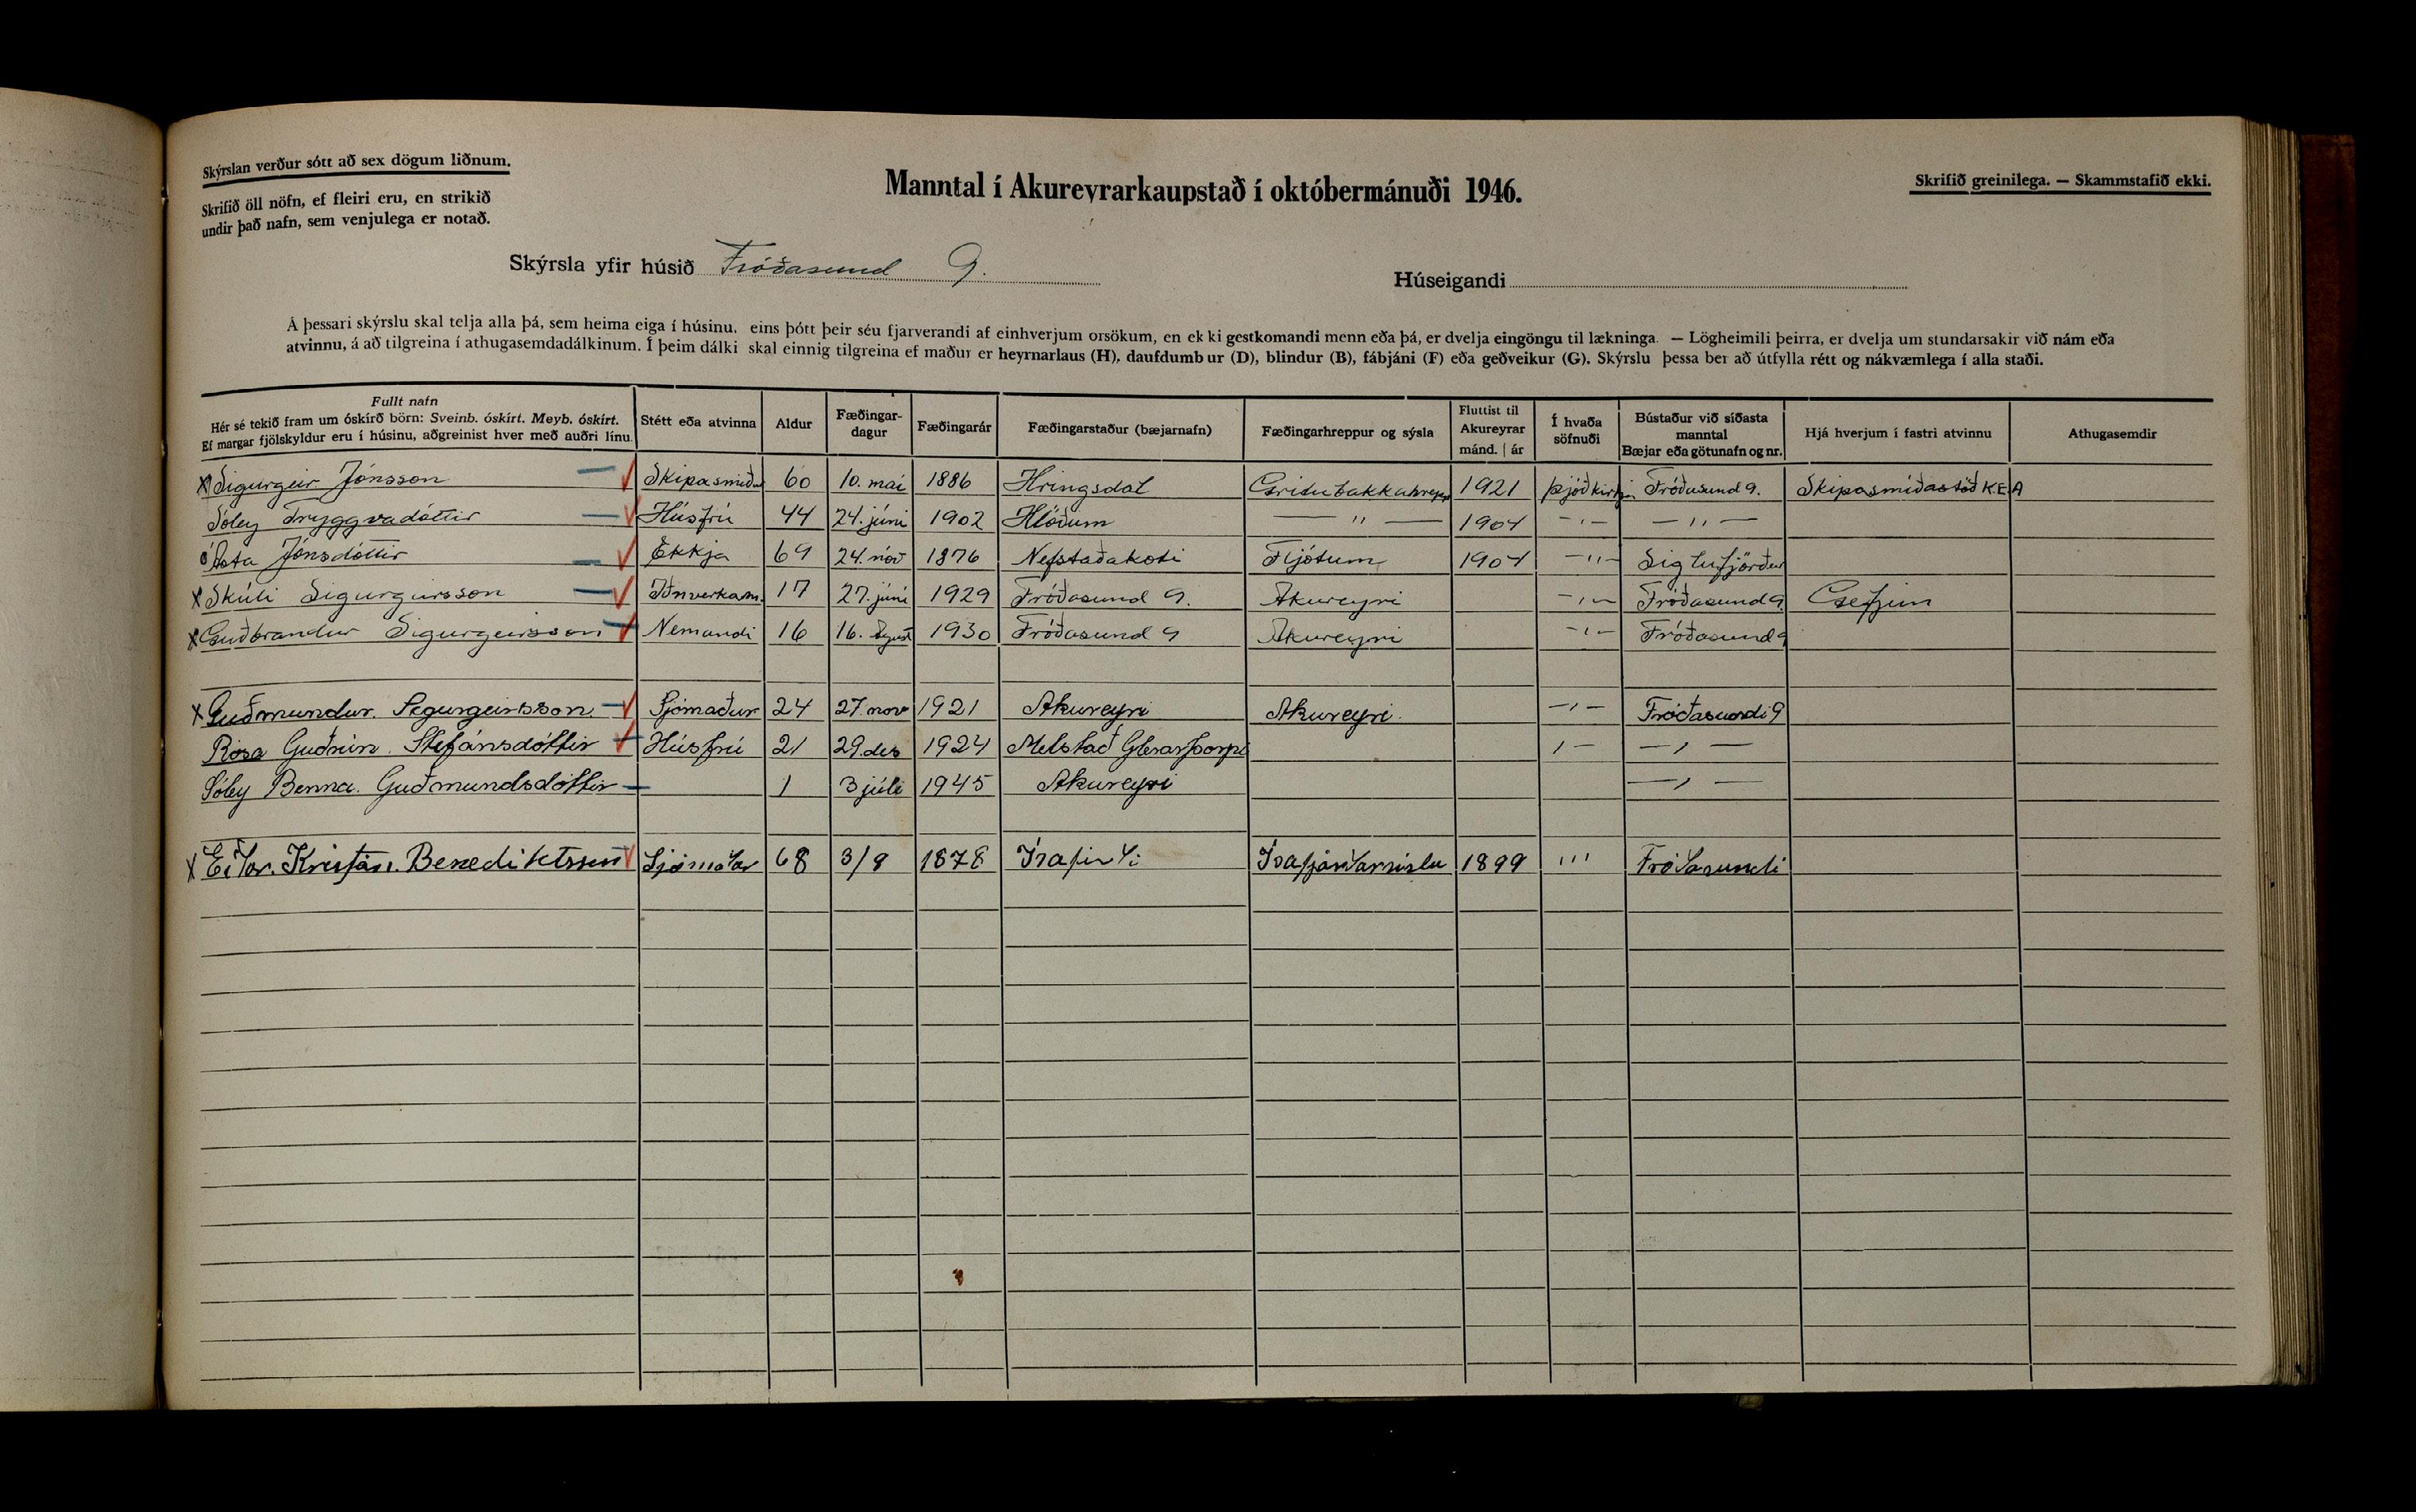 Skýrslan verður sótt að sex dögum liðnum.
Skrifið öll nöfn, ef fleiri eru, en strikið
undir það nafn, sem venjulega er notað.
Manntal í Akureyrarkaupstað í októbermánuði 1946.
Skrifið greinilega. — Skammstafið ekki.
Skýrsla yfir húsið Fróðasund 9.
Húseigandi
Á þessari skýrslu skal telja alla þá, sem heima eiga í húsinu, eins þótt þeir séu fjarverandi af einhverjum orsökum, en ekki gestkomandi menn eða þá, er dvelja eingöngu til lækninga. — Lögheimili þeirra, er dvelja um stundarsakir við nám eða
atvinnu, á að tilgreina í athugasemdadálkinum. Í þeim dálki skal einnig tilgreina ef maður er heyrnarlaus (H), daufdumbur (D), blindur (B), fábjáni (F) eða geðveikur (G). Skýrslu þessa ber að útfylla rétt og nákvæmlega í alla staði.
Fullt nafn
Hér sé tekið fram um óskírð börn: Sveinb. óskírt. Meyb. óskírt.
Ef margar fjölskyldur eru í húsinu, aðgreinist hver með auðri línu.
Stétt eða atvinna
Aldur
Fæðingar-
dagur
Fæðingarár
Fæðingarstaður (bæjarnafn)
Fæðingarhreppur og sýsla
Fluttist til
Akureyrar
mánd. | ár
Í hvaða
söfnuði
Bústaður við síðasta
manntal
Bæjar eða götunafn og nr.
Hjá hverjum í fastri atvinnu
Athugasemdir
x Sigurgeir Jónsson — Skipasmiður 60 10. mai 1886 Hringsdal 1921 þjóðkirkja Fróðasund 9. Skipasmíðastöð KEA
Sóley Tryggvadóttir — Húsfrú 44 24. júni 1902 Hlöðum — " — 1904 - ' - — " —
Ásta Jónsdóttir — Ekkja 69 24. nóv 1876 Nefstaðakoti Fljótum 1904 - " - Siglufjörður
x Skúli Sigurgeirsson — Iðnverkam. 17 27. júni 1929 Fróðasund 9. Akureyri - ' - Fróðasund 9 Gefjun
x Guðbrandur Sigurgeirsson — Nemandi 16 16. ágúst 1930 Fróðasund 9 Akureyri - ' - Fróðasund 9
x Guðmundur. Sigurgeirsson. — Sjómaður 24 27. nov 1921 Akureyri Akureyri. - ' - Fróðasundi 9
Rósa Guðrún. Stefánsdóttir — Húsfrú 21 29. des 1924 Melstað Glerárþorpi ' - — ' —
Sóley Benna. Guðmundsdóttir — 1 3 júli 1945 Akureyri — ' —
x Kristján. Benediktsson Sjómaðor 68 3/8 1878 Ísafirði Ísafjarðarsíslu 1899 ''' Fróðasundi